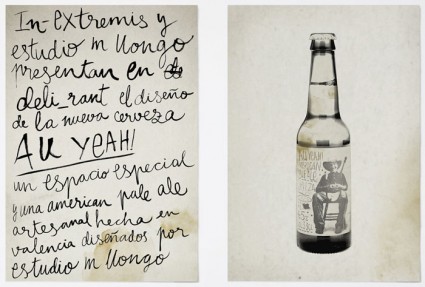 In-extremis y
estudio m Uongo
presentan en de
deli_rant el diseño
de la nueva cerveza
AU YEAH!
un espacio especial
y una american pale ale
artesanal hecha en
valencia diseñados por
estudio m Uongo
AU YEAH!